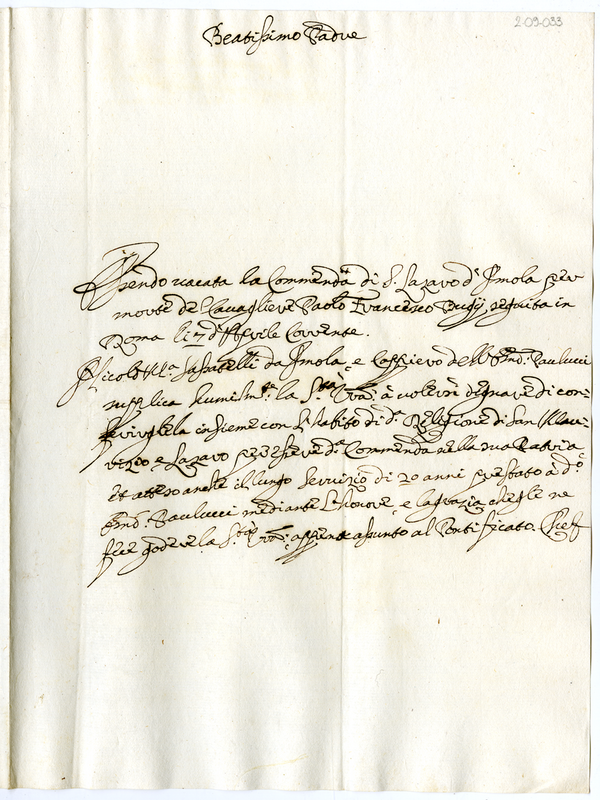 2-09-033
Beatissimo Padre
Essendo vacata la Commenda di S. Lazaro d'Imola per
morte del Cavagliere Paolo Francesco Buggi, seguita in
Roma li 7 d'Aprile Corrente.
Nicolò Sassatelli da Imola, e Caffiero dell' Emo: Paulucci
supplica humilmte: la Stà Vra: à volersi degnare di con=
ferirglela insieme con l'habito di da: Religione di San Mau=
ritio e Lazaro per essere da: Commenda nella sua Patria
et atteso anche il lungo servitio di 20 anni prestato à do:
Emo: Paulucci mediante l'honore, e la gratia che gle ne
fece godere la Stà Vra: appena assunto al Pontificato. Che